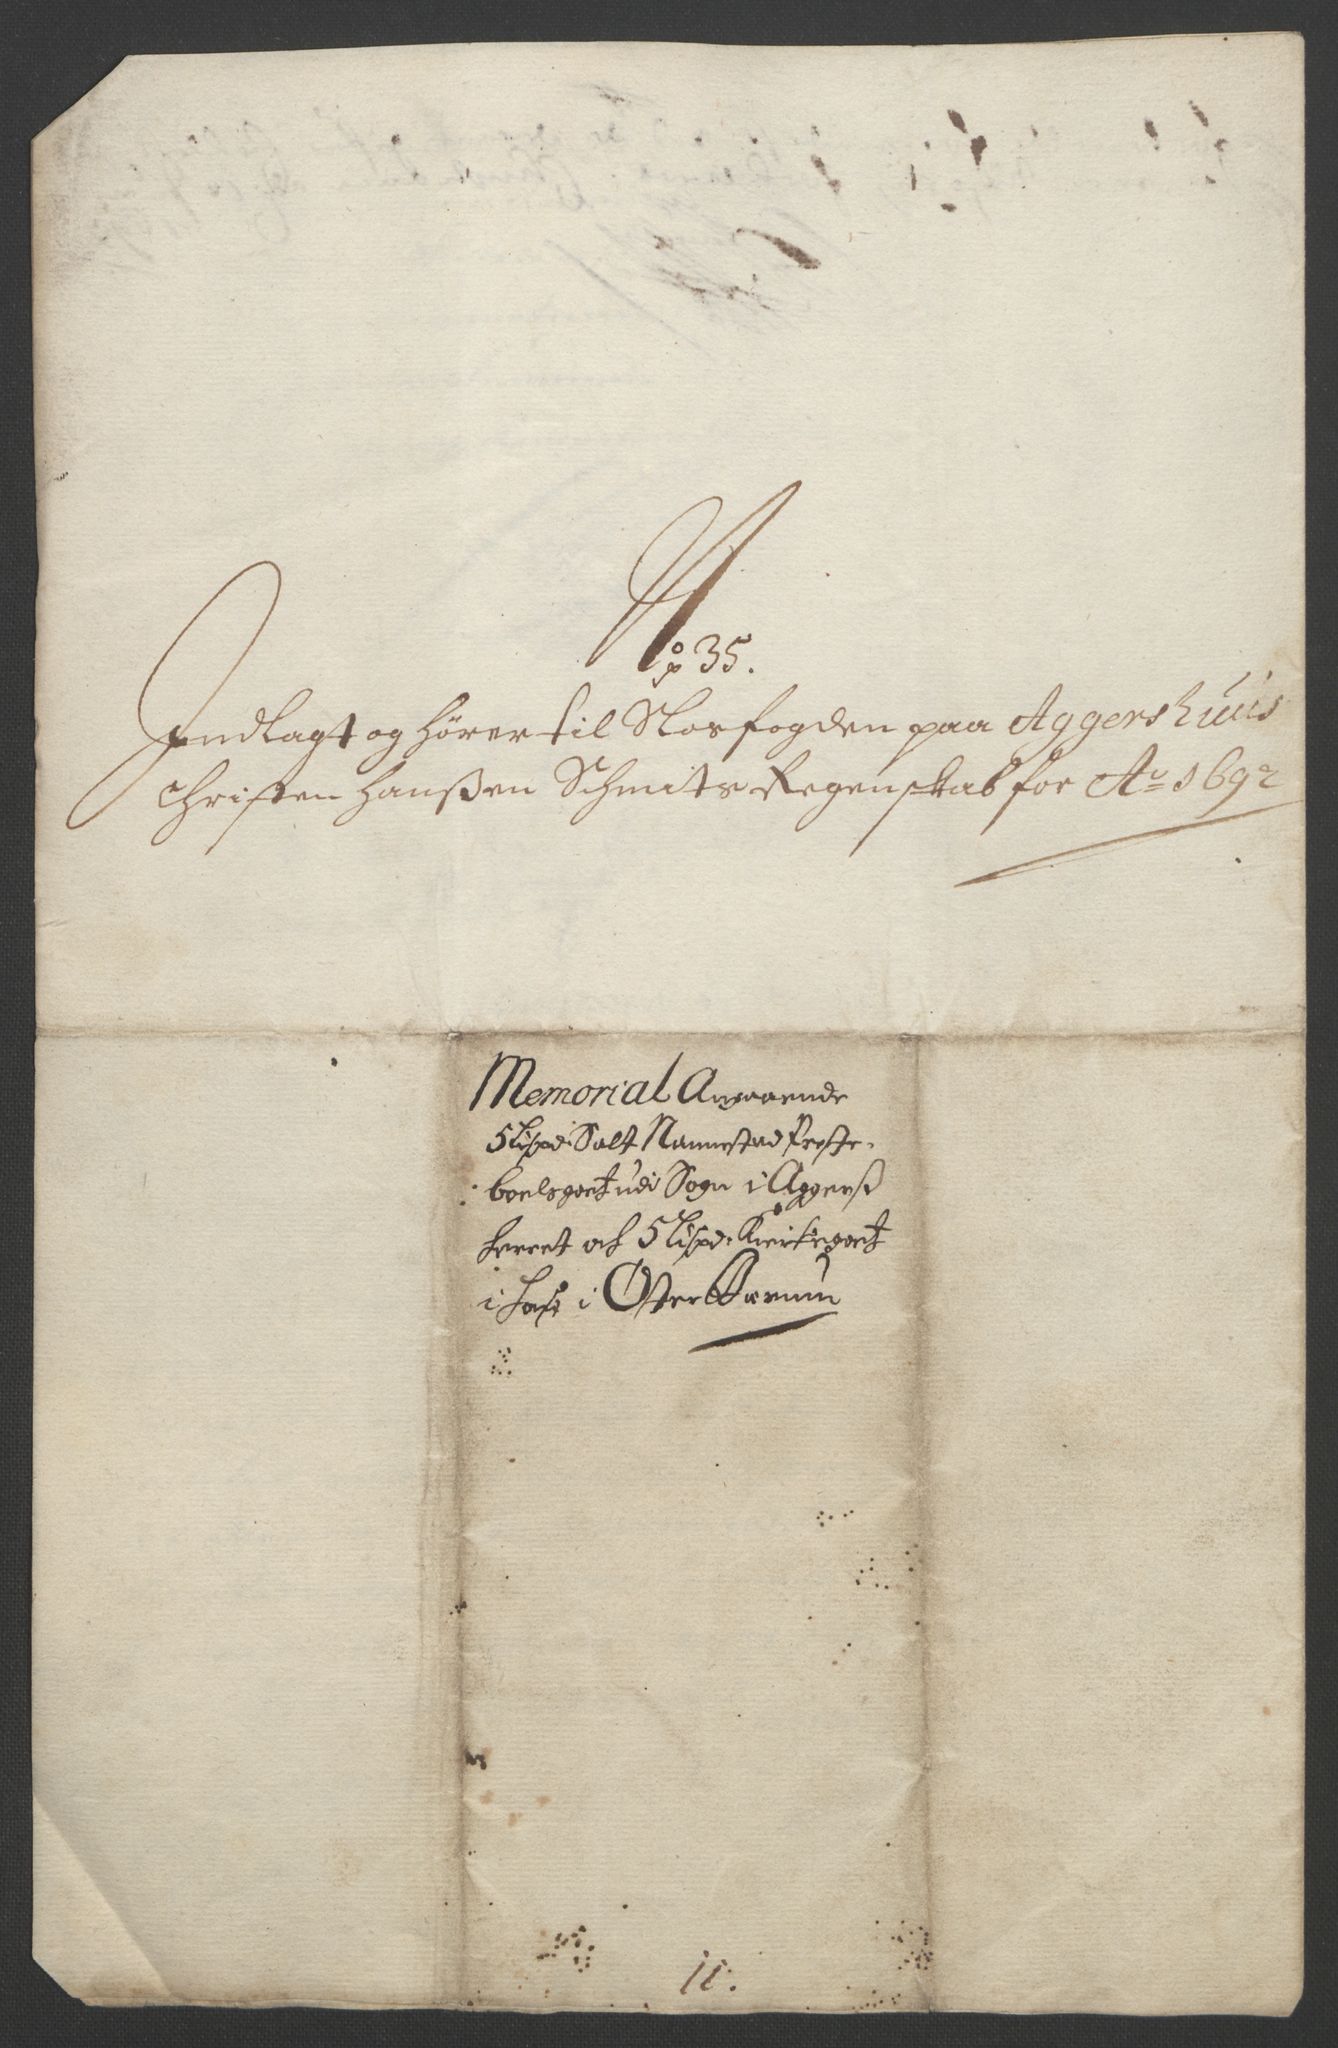 No 35.
Indlagt og hører til Slosfogden paa Aggershuus
Christen Hanßen Schmits Regenskab for Ao 1692
Memorial Angaaende
5 Lispd: Salt Nannestad Preste-
boels goet udi Sogn i Aggerß
herret och 5 Lispd. Kirkegoet
i i Øster Bærum
11.